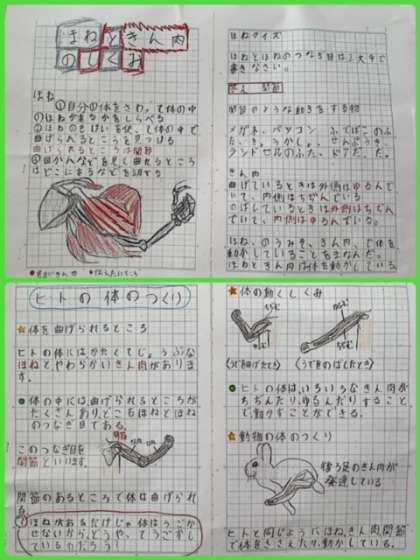 ほねときん肉
のしくみ
ほね
①自分の体をさわって体の中
のほねがあるかをしらべる
曲げられるところをさがす
曲げられるところは関節
どこにあるなどを調べる
ほねクイズ
ほねとほねのつなぎ目は？文字で
書きなさい。
関節
関節のような動きをする物
メガネ、パソコン
きん肉
曲げているときは外側はゆるんで
いて、内側はちぢんでいる
のばしているときは外側はちぢん
でいて、内側はゆるんでいる。
ほね、のうみそ、きん肉、で体を
動かしていることをまなんだ。
ほねときん肉は体を動かしている
ヒトの体のつくり
体を曲げられるところ
ヒトの体にはかたくてじょうぶな
ほねとやわらかいきん肉がありま
す。
体の中には、曲げられるところが
たくさんあり、どこもほねとほね
のつなぎ目である。
関節
このつなぎ目を
関節といいます。
関節のあるところで体は曲げられ
る
ほねがあるだけじゃ体はうごか
せないから、どうやってうごかし
ているのだろう？
体の動くしくみ
(うで曲げたとき)
(うでのばしたとき)
ヒトの体は、いろいろなきん肉が
ちぢんだり、ゆるんだりすること
で、動かすことができる。
動物の体のつくり
後ろ足のきん肉が
発達している
ヒトと同じようにほね、きん肉、関節
で体をささえたり、動かしている。